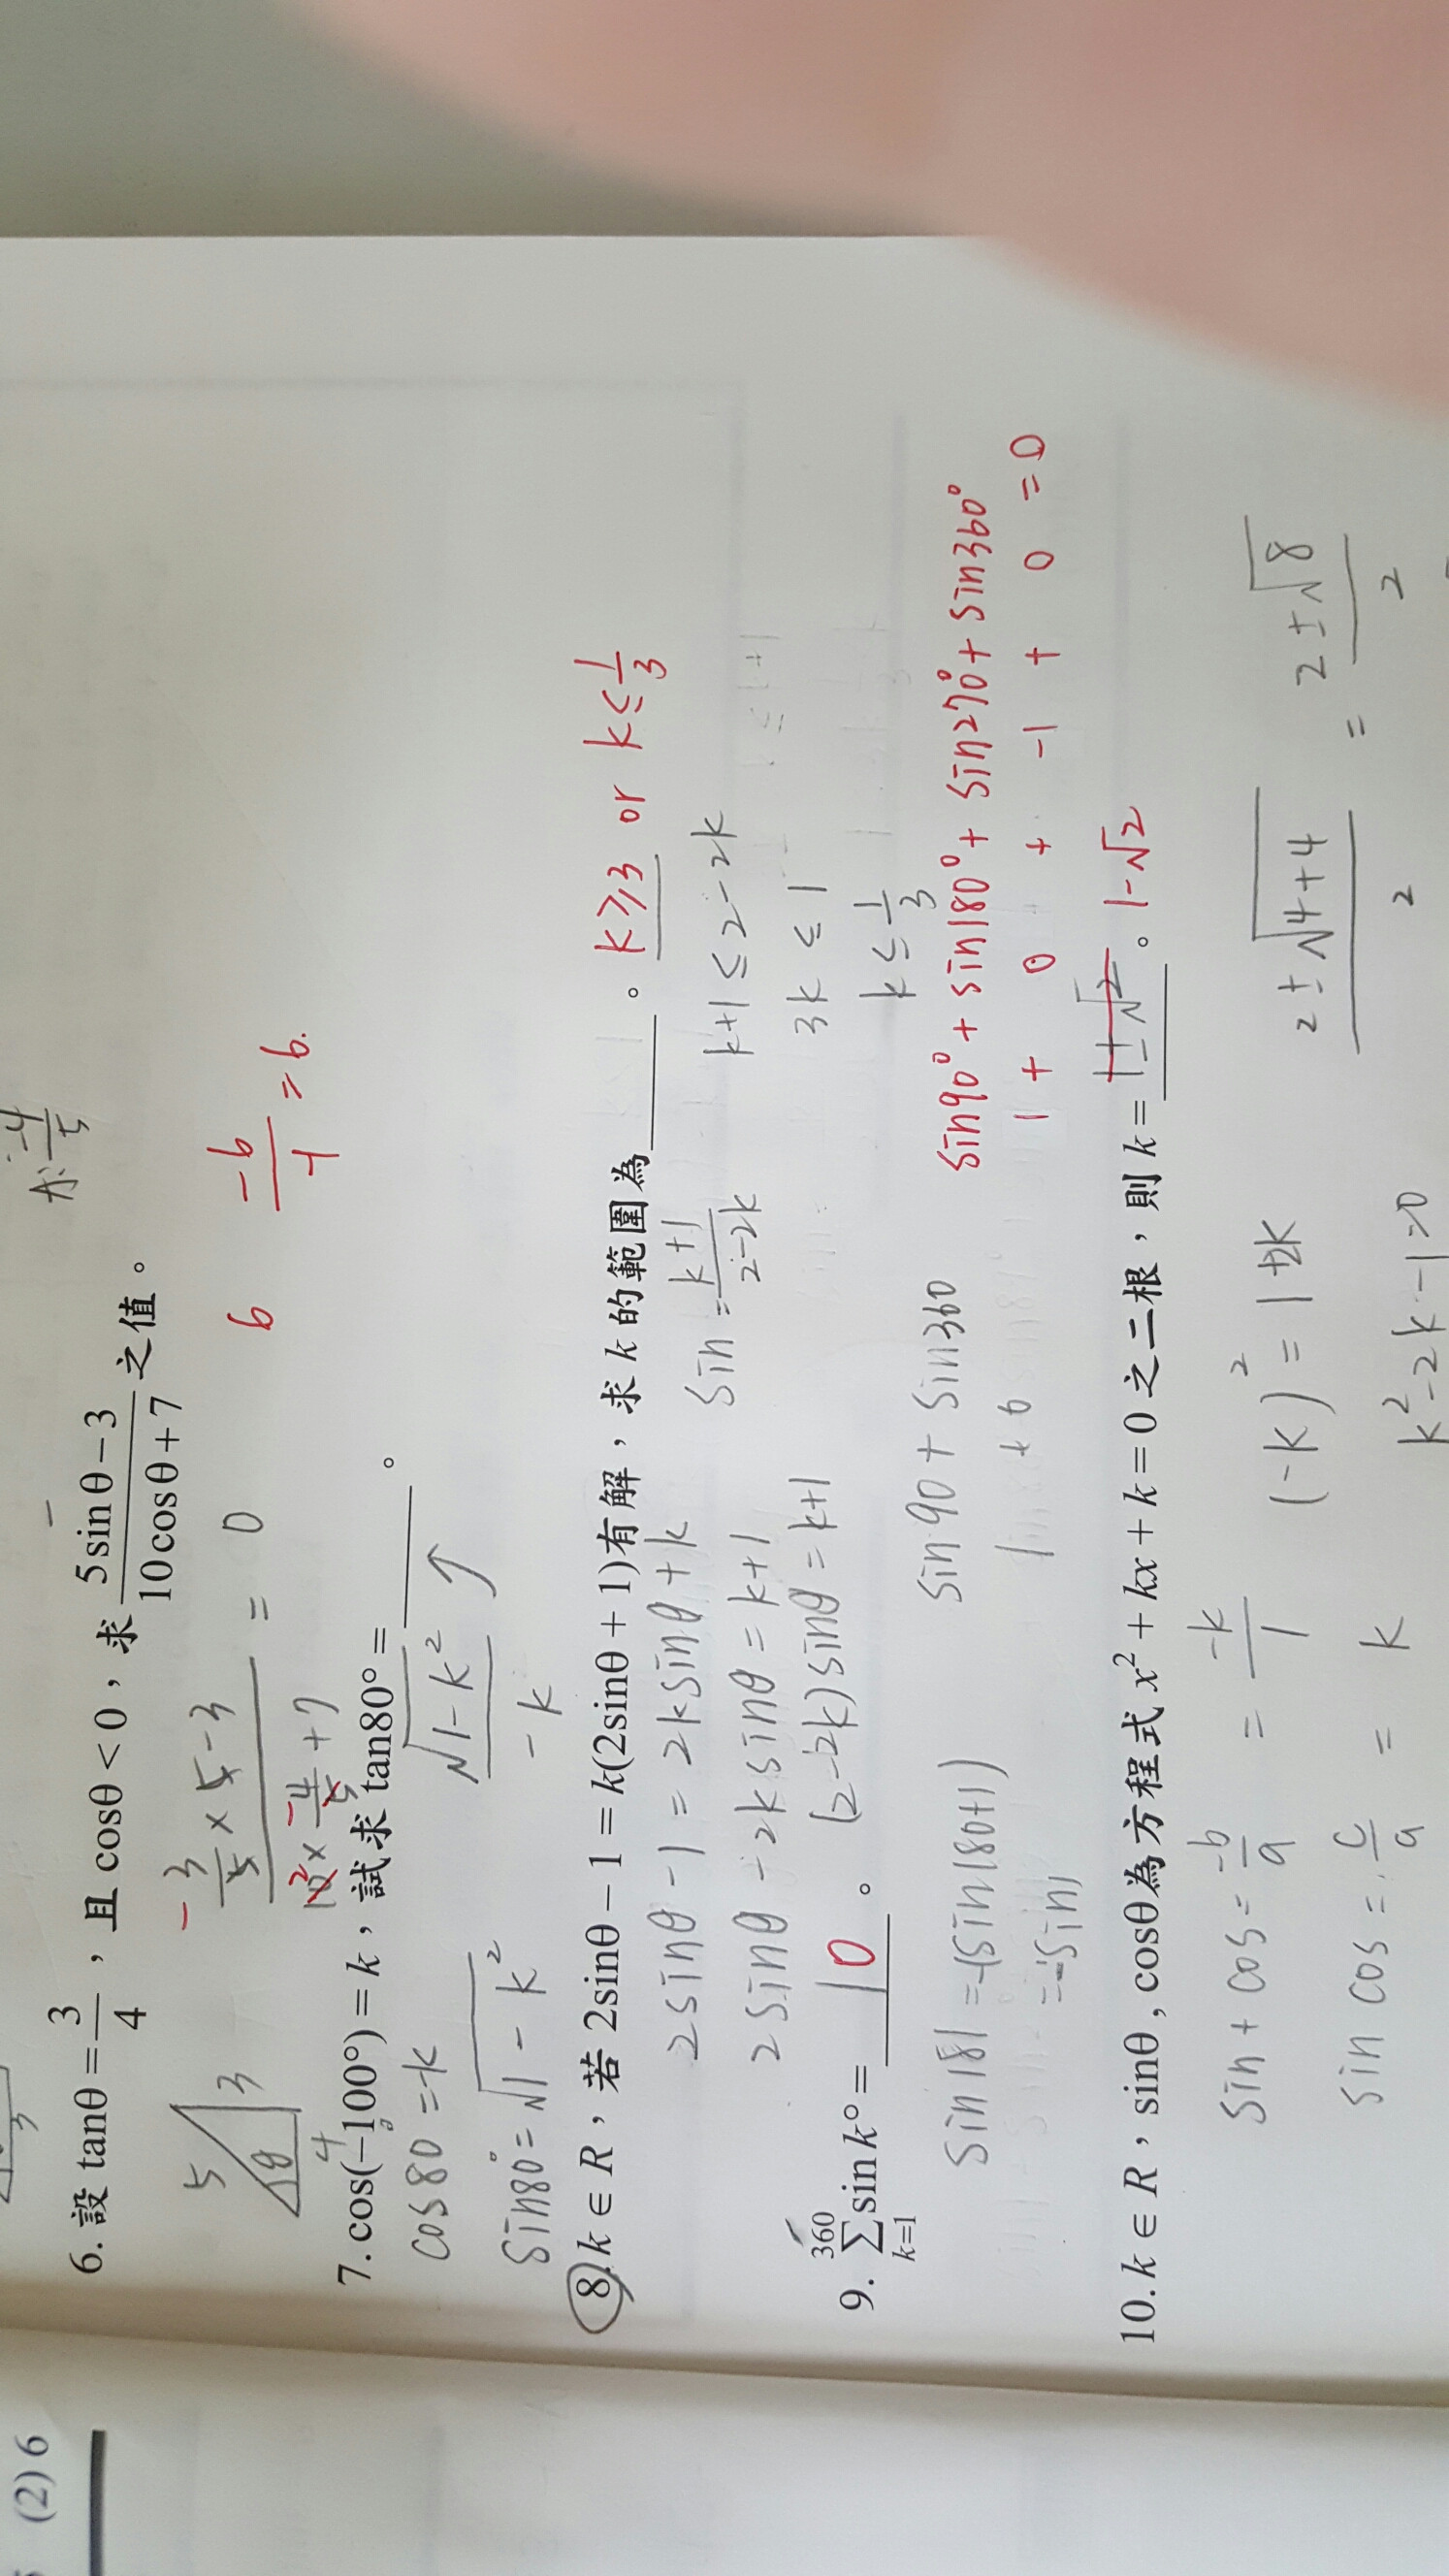 (2) 6
A: -4/5
6. 設 tanθ = 3/4 ，且 cosθ < 0，求 (5sinθ − 3)/(10cosθ + 7) 之值。
5 3 θ 4
(-3/5 × 5 - 3)/(10 × -4/5 + 7) = 0
6 -6/-1 = 6.
7. cos(−100°) = k，試求 tan80° = ______。
cos80° = -k
√1-k² / -k
sin80° = √1-k²
8. k ∈ R，若 2sinθ − 1 = k(2sinθ + 1)有解，求 k 的範圍為______。 k≥3 or k≤1/3
2sinθ - 1 = 2ksinθ + k
sin = (k+1)/(2-2k)
k+1 ≤ 2-2k
2sinθ - 2ksinθ = k+1
3k ≤ 1
(2-2k)sinθ = k+1
k ≤ 1/3
9. 360 ∑ k=1 sin k° = 0 。
sin181 = -(sin180+1)
= -sin1
sin90 + sin360
1 + 0
sin90° + sin180° + sin270° + sin360°
1 + 0 + -1 + 0 = 0
10. k ∈ R，sinθ , cosθ為方程式 x² + kx + k = 0 之二根，則 k = 1±√2 。 1-√2
sin + cos = -b/a = -k/1
(-k)² = 1+2k
sin cos = c/a = k
k²-2k-1=0
2±√4+4 / 2 = 2±√8 / 2